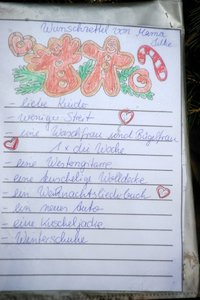 Wunschzettel von Mama
Silke
- liebe Kinder
- weniger Streit
- eine Waschfrau und Bügelfrau
1x die Woche
- eine Westerngitarre
- eine kuschelige Wolldecke
- ein Weihnachtsliederbuch
- ein neues Auto
- eine Kuscheljacke
- Winterschuhe